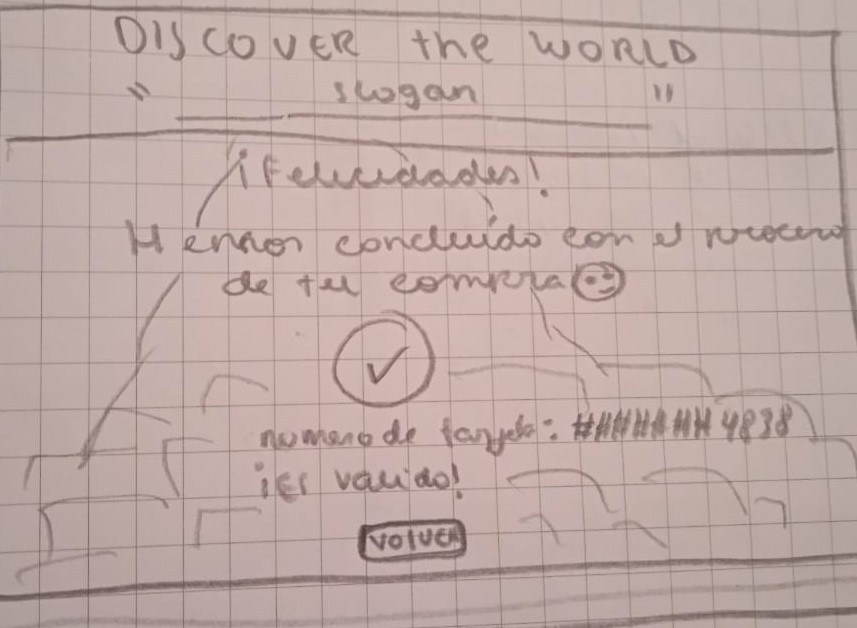 DISCOVER the WORLD
" slogan "
¡Felicidades!
Hemos concluido con el proceso
de tu compra
numero de tarjeta: ####### 4838
¡Es valido!
VOLVER